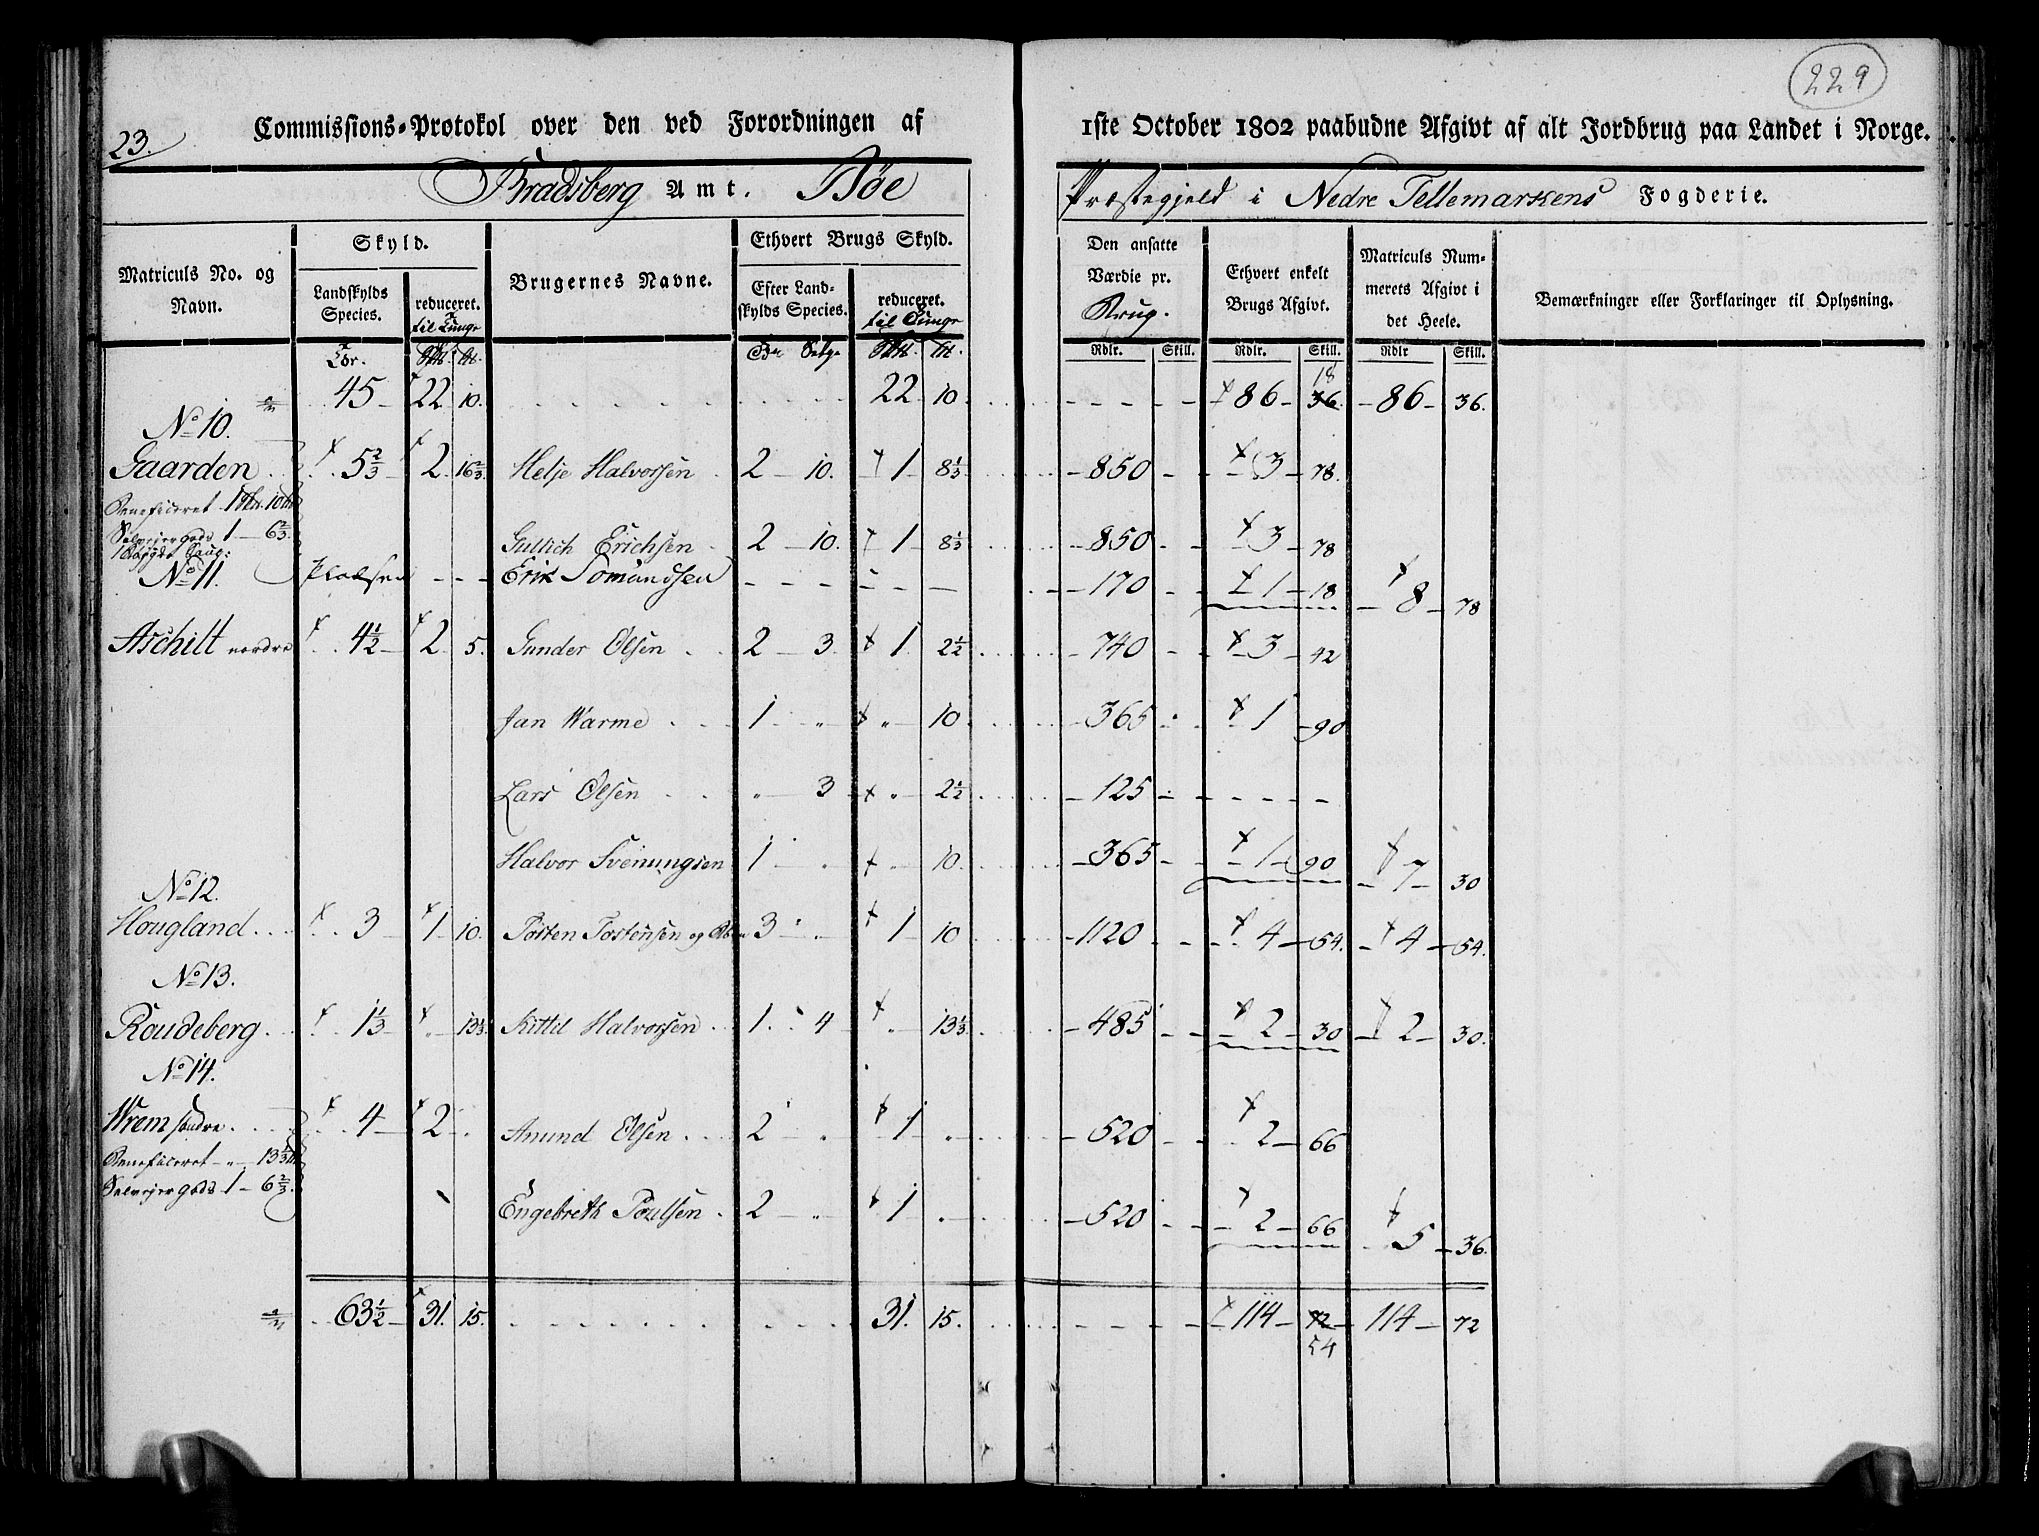 229
23. Commissions-Protokol over den ved Forordningen af 1ste October 1802 paabudne Afgivt af alt Jordbrug paa Landet i Norge.
Bradsberg Amt. Bøe Præstegjeld i Nedre Tellemarkens Fogderie.
Matriculs No. og Navn. Skyld. Brugernes Navne. Ethvert Brugs Skyld. Den ansatte Værdie pr. Brug. Ethvert enkelt Brugs Afgivt. Matriculs Nummerets Afgivt i det Heele. Bemærkninger eller Forklaringer til Oplysning.
Landskylds Species. reduceret. til Tunge Efter Landskylds Species. reduceret. til Tunge
Rdlr. Skill. Rdlr. Skill. Rdlr Skill.
45 22 10. 22 10 86 36. 18 86 36.
No 10.
Gaarden 5 2/3 2 16 2/3 Helje Halvorssen 2 10. 1 8 1/3 850 3 78.
Beneficeret 1 10
Selvejergods 1 6 2/3
Gullich Erichsen 2 10. 1 8 1/3 850 3 78
No 11. Pladsen Erik Tomundsen 170 1 18 8 78
Aschilt nordre 4 1/2 2 5. Gunder Olsen 2 3 1 2 1/2 740 3 42
Jan Warme 1 " " 10 365 1 90
Lars Olsen " 3 " 2 1/2 125
Halvor Svenungsen 1 " " 10 365 1 90 7 30
No 12.
Hougland 3 1 10. Tosten Tostensen og 3 " 1 10 1120 4 54. 4 54.
No 13.
Roudeberg 1 1/3 " 13 1/3 Kittil Halvorssen 1 4 " 13 1/3 485 2 30 2 30.
No 14.
Wrem søndre 4 2 " Anund Olsen 2 " 1 " 520 2 66
Beneficeret " 13 1/3
Selvejergods 1 6 2/3
Engebreth Poulsen 2 " 1 " 520 2 66 5 36.
63 1/2 31. 15. 31. 15. 114 72 114 72
54